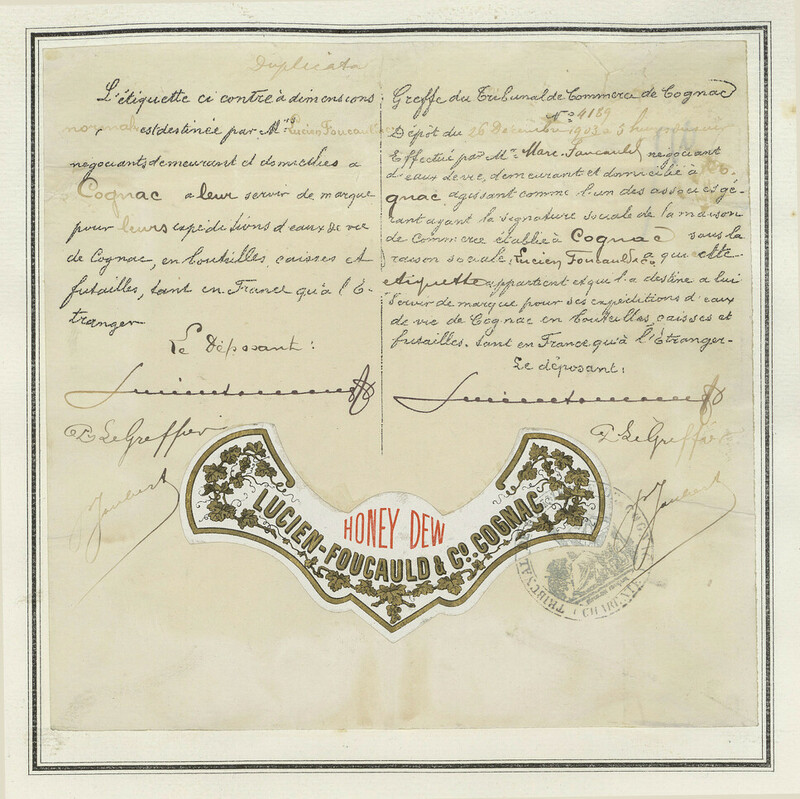 Duplicata
L'étiquette ci contre à dimensions
normales est destinée par Mrs Lucien Foucauld &
négociants demeurant et domiciliés a
Cognac a leur servir de marque
pour leurs expéditions d'eaux de vie
de Cognac, en bouteilles, caisses et
futailles, tant en France qu'à l'É-
tranger
Le Déposant:
P. Le Greffier
Joubert
Greffe du Tribunal de Commerce de Cognac
No 4189
Dépot du 26 Décembre 1903 à 5 heures
Effectué par Mr Marc Foucauld negociant
d'eaux de vie, demeurant et domicilié à Co-
gnac agissant comme l'un des associés gé-
rant ayant la signature sociale de la maison
de Commerce établie à Cognac sous la
raison sociale, Lucien Foucauld & Co a qui cette
etiquette appartient et qui l'a destine a lui
servir de marque pour ses expéditions d'eaux
de vie de Cognac en bouteilles, caisses et
futailles. tant en France qu'à l'Étranger-
Le déposant:
P. Le Greffier
Joubert
HONEY DEW
LUCIEN-FOUCAULD & Co. COGNAC
TRIBUNAL
CHARENTE